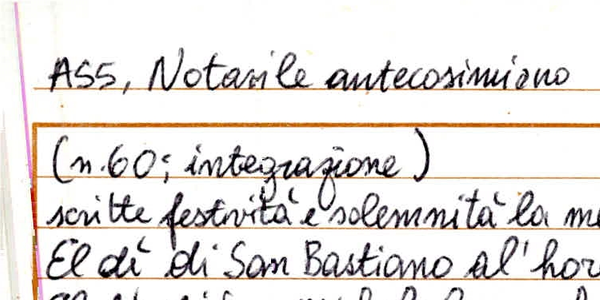 ASS, Notarile antecosimiano
(n. 60; integrazione)
scritte festività e solemnità la
El dì di San Bastiano al'hor